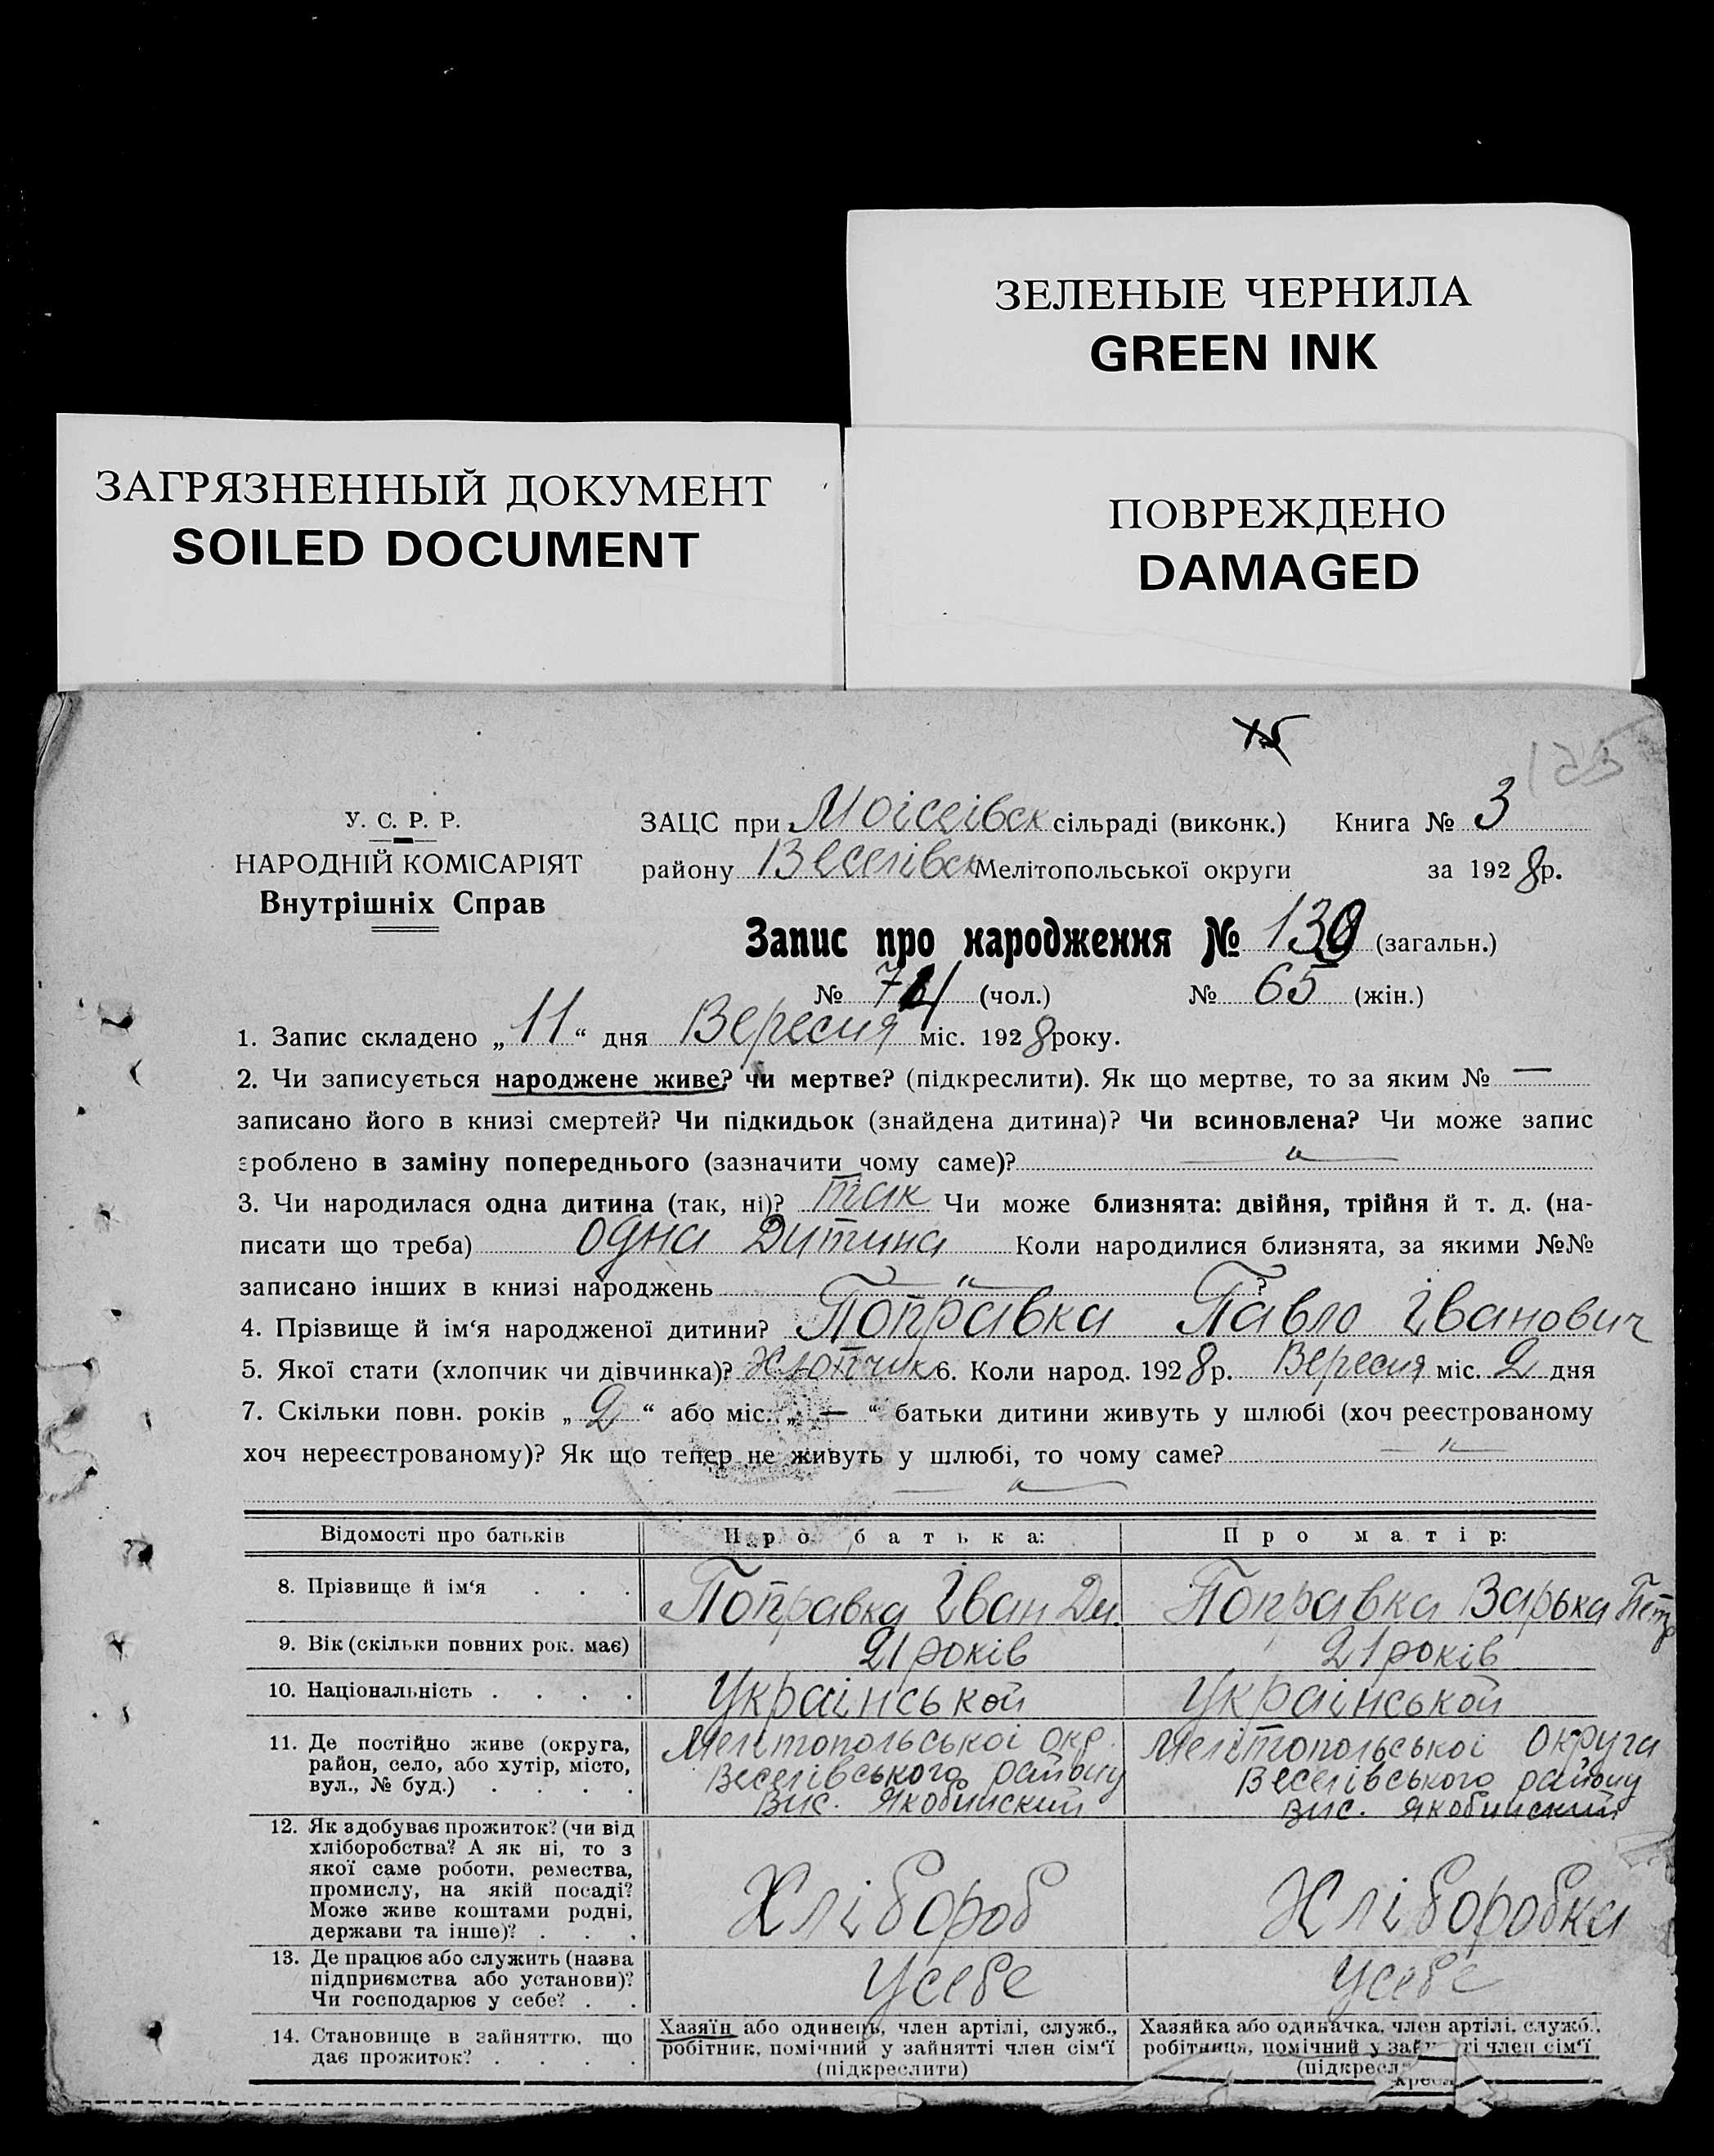 ЗЕЛЕНЫЕ ЧЕРНИЛА
GREEN INK
ЗАГРЯЗНЕННЫЙ ДОКУМЕНТ
SOILED DOCUMENT
ПОВРЕЖДЕНО
DAMAGED
У. С. Р. Р.
НАРОДНІЙ КОМІСАРІЯТ
Внутрішніх Справ
ЗАЦС при Моісеівск сільраді (виконк.) Книга № 3
району Веселівск Мелітопольської округи за 1928 р.
Запис про народження № 139 (загальн.)
№ 74 (чол.) № 65 (жін.)
1. Запис складено „ 11 “ дня Вересня міс. 1928 року.
2. Чи записується народжене живе? чи мертве? (підкреслити). Як що мертве, то за яким № —
записано його в книзі смертей? Чи підкидьок (знайдена дитина)? Чи всиновлена? Чи може запис
зроблено в заміну попереднього (зазначити чому саме)? — „ —
3. Чи народилася одна дитина (так, ні)? так Чи може близнята: двійня, трійня й т. д. (на-
писати що треба) одна Дитина Коли народилися близнята, за якими №№
записано інших в книзі народжень — „ — ?
4. Прізвище й ім‘я народженої дитини? Поправка Павло Іванович
5. Якої стати (хлопчик чи дівчинка)? Хлопчик 6. Коли народ. 1928 р. Вересня міс. 2 дня
7. Скільки повн. років „ 2 “ або міс. „ — “ батьки дитини живуть у шлюбі (хоч реєстрованому
хоч нереєстрованому)? Як що тепер не живуть у шлюбі, то чому саме? — „ —
— „ —
Відомості про батьків Про батька: Про матір:
8. Прізвище й ім‘я . . . Поправка Іван Дм. Поправка Варька Петр
9. Вік (скільки повних рок. має) 21 років 21 років
10. Національність . . . . Украінськой Украінськой
11. Де постійно живе (округа, Мелітопольськоі окр. Мелітопольськоі округа
район, село, або хутір, місто, Веселівського району Веселівського району
вул., № буд.) . . . . Вис. Якобинский Вис. Якобинский
12. Як здобуває прожиток? (чи від
хліборобства? А як ні, то з
якої саме роботи, ремества,
промислу, на якій посаді? Хлібороб Хліборобка
Може живе коштами родні,
держави та інше)? . . .
13. Де працює або служить (назва
підприємства або установи)? Усебе Усебе
Чи господарює у себе? . .
14. Становище в зайняттю, що Хазяїн або одинець, член артілі, служб., Хазяйка або одиначка, член артілі, служб.,
дає прожиток? . . . . робітник, помічний у зайнятті член сім‘ї робітниця, помічний у зайнятті член сім‘ї
(підкреслити) (підкресл